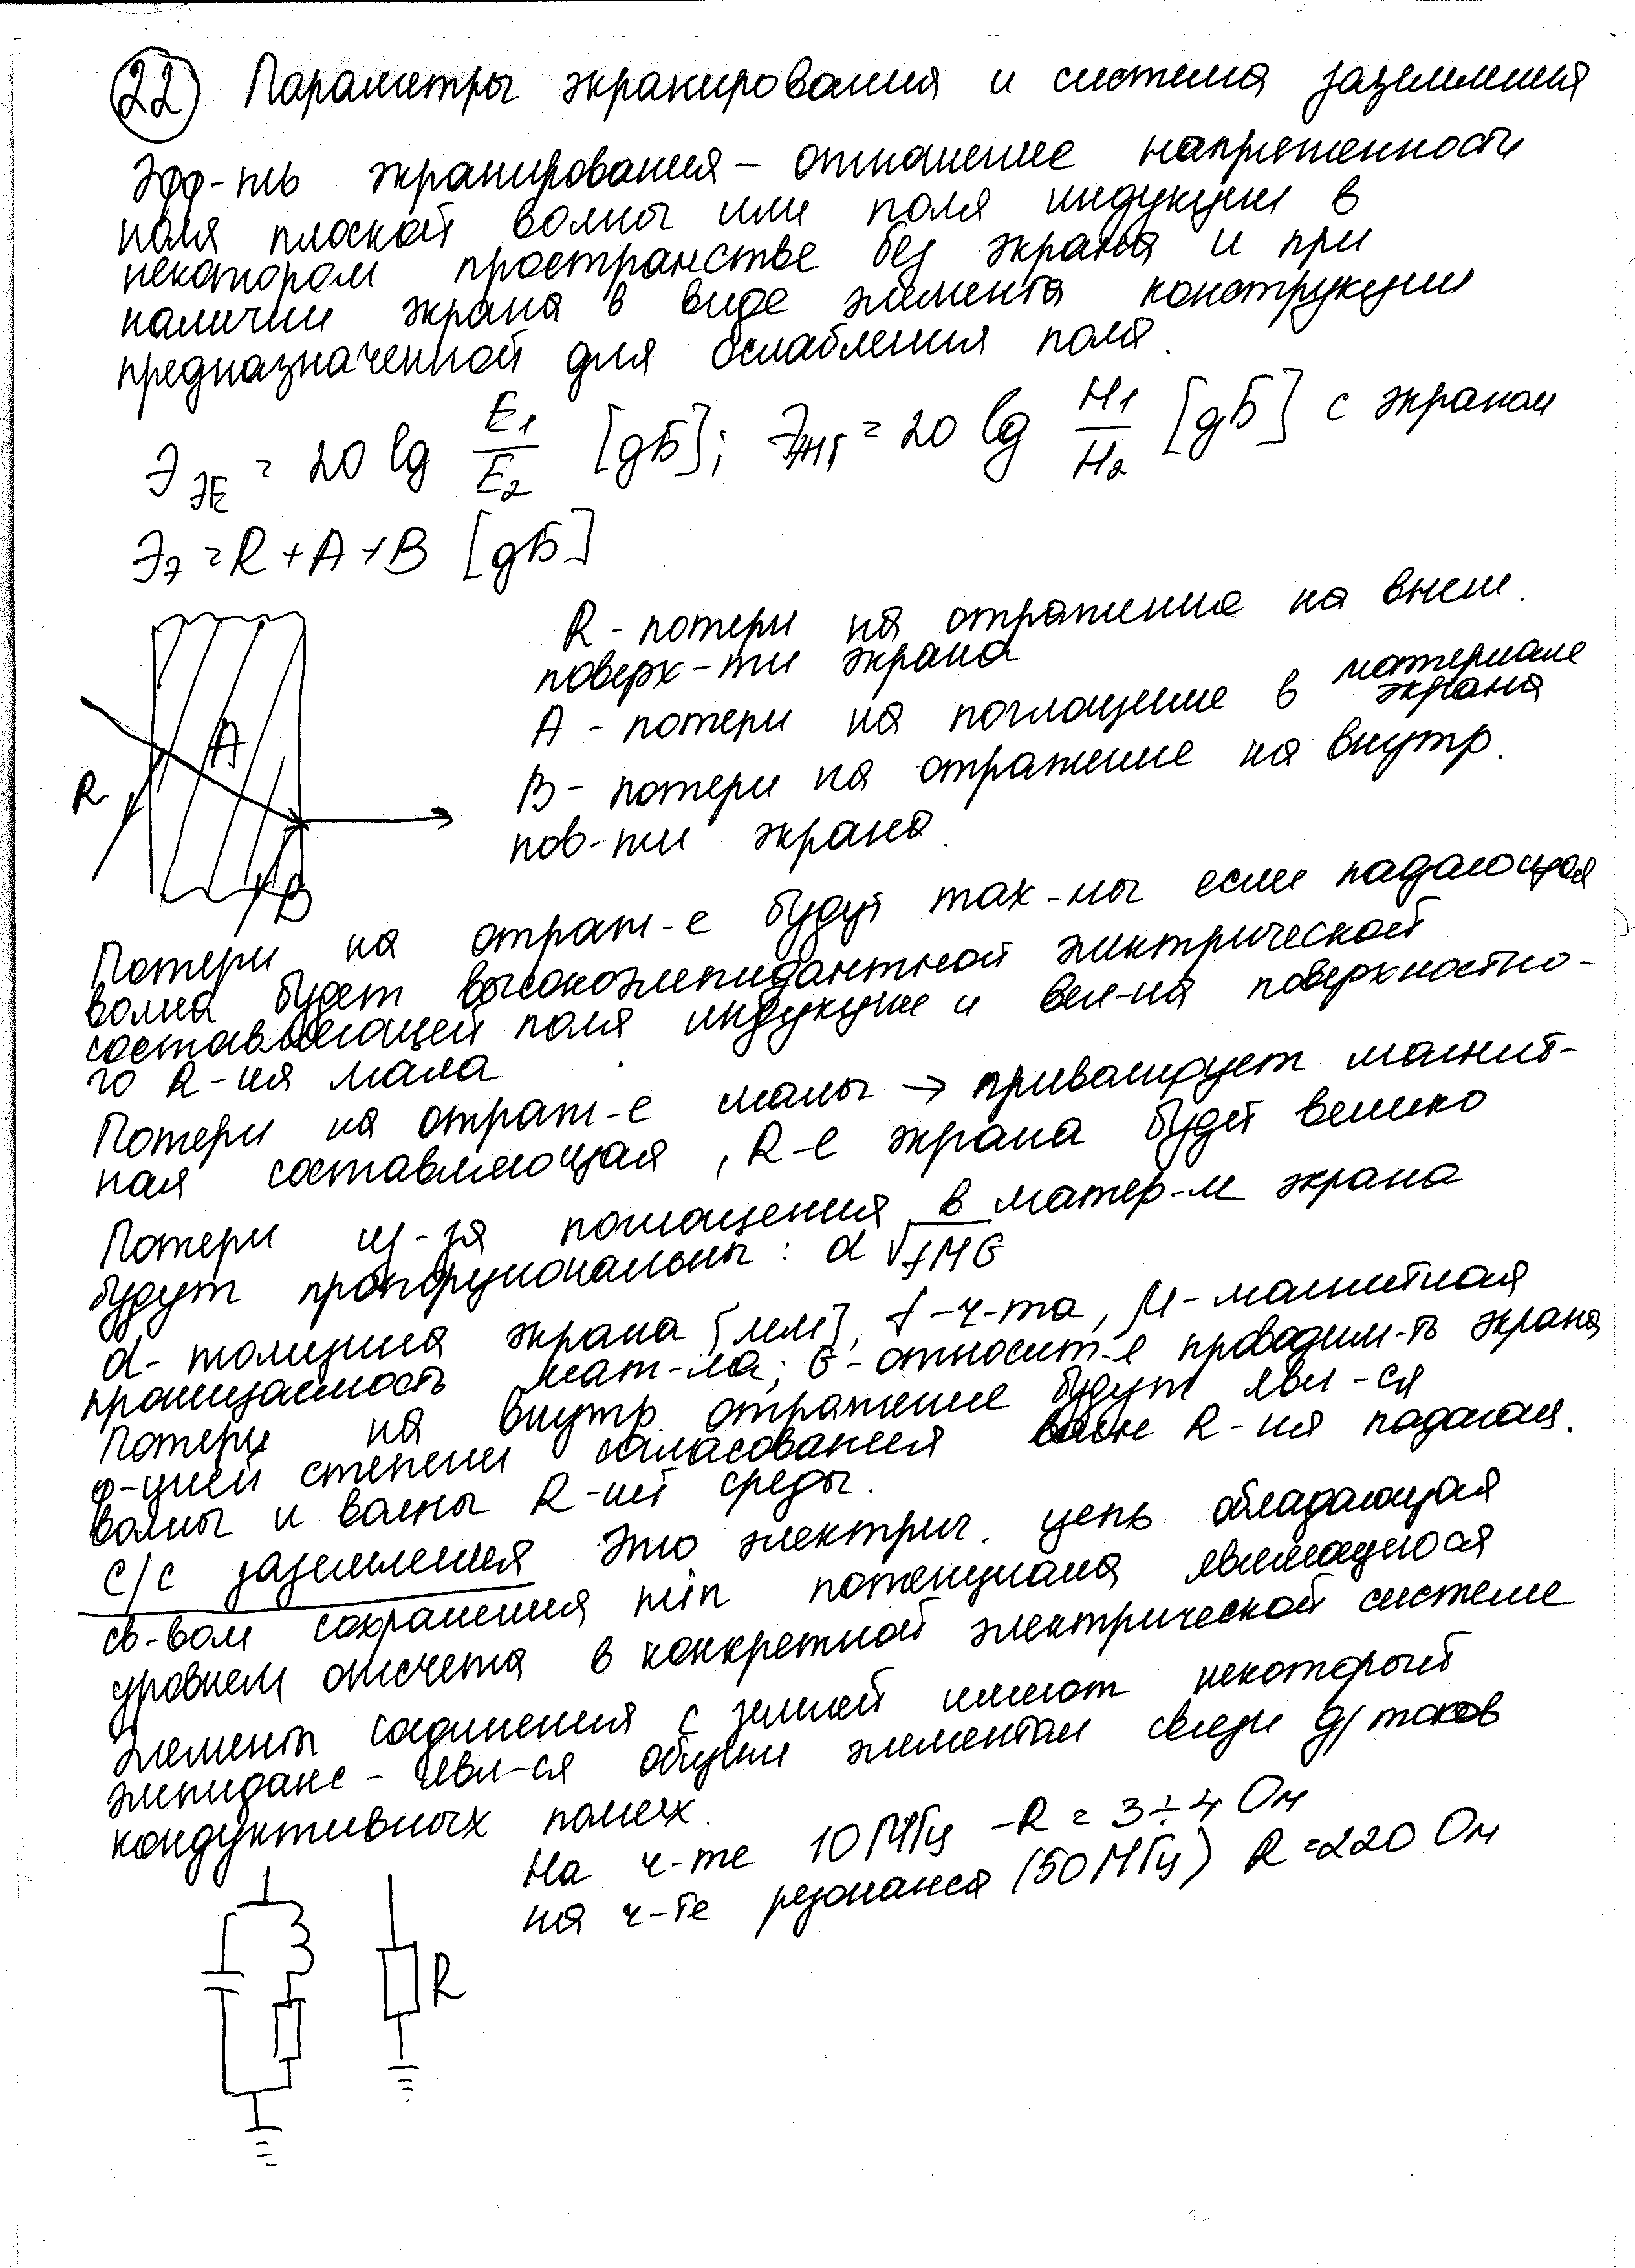 22 Параметры экранирования и система заземления
Эфф-ть экранирования – отношение напряженности
поля плоской волны или поля индукции в
некотором пространстве без экрана и при
наличии экрана в виде элемента конструкции
предназначенной для ослабления поля.
Э_ЭЕ = 20 lg E1/E2 [дБ]; = 20 lg H1/H2 [дБ] с экраном
Э_Э = R + A + B [дБ]
R - потери на отражение на внеш.
поверх-ти экрана
A - потери на поглощение в материале
экрана
B - потери на отражение на внутр.
пов-ти экрана.
R
A
B
Потери на отраж-е будут max-мы если падающая
волна будет высокоэмпидантной электрической
составляющей поля индукции и вел-на поверхностно-
го R-ия мала
Потери на отраж-е малы → превалирует магнит-
ная составляющая, R-е экрана будет велико
Потери из-за поглощения в матер-м экрана
будут пропорциональны: d √fμG
d - толщина экрана [мм], f - ч-та, μ - магнитная
проницаемость мат-ла; G - относит-я проводим-ть экрана
Потери на внутр. отражение будут явл-ся
ф-цией степени согласования R-ия падающ.
волны и волны R-ий среды.
с/с заземления это электрич. цепь обладающая
св-вом сохранения min потенциала являющегося
уровнем отсчета в конкретной электрической системе
Элементы соединения с землей имеют некоторый
эмпиданс - явл-ся общим элементом связи д/токов
кондуктивных помех.
На ч-те 10 МГц - R = 3÷4 Ом
на ч-те резонанса (50 МГц) R = 220 Ом
R